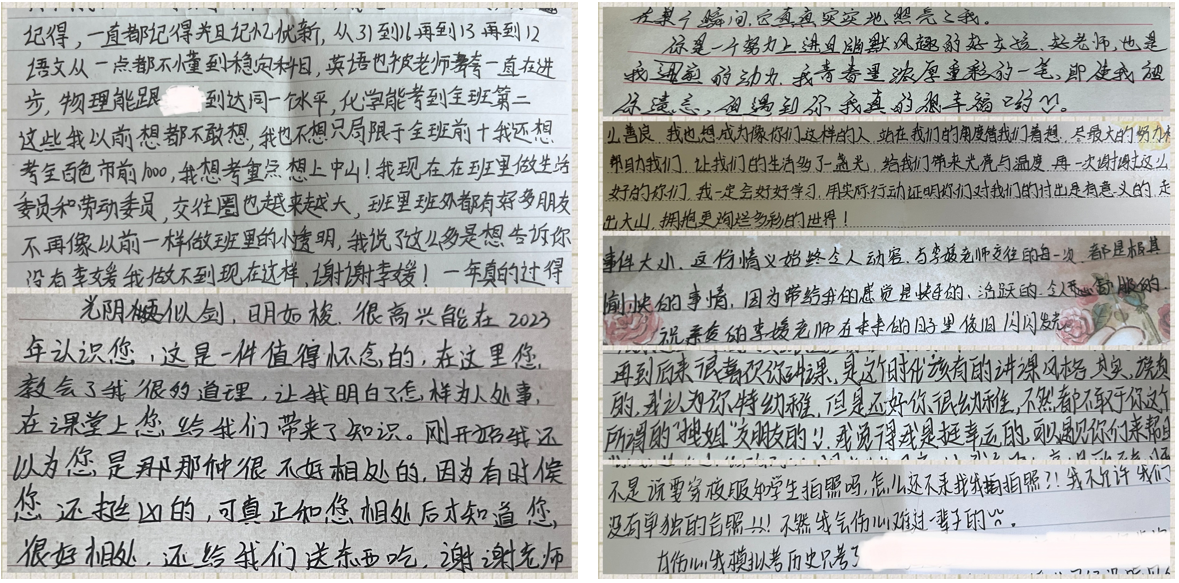 记得,一直都记得并且记忆优新,从31到16再到13再到12
语文从一点都不懂到稳定科目,英语也被老师夸一直在进
步,物理能跟 到达同一个水平,化学能考到全班第二
这些我以前想都不敢想,我也不想只局限于全班前十我还想
考全百色市前1000,我想考重点想上中山!我现在在班里做生活
委员和劳动委员,交往圈也越来越大,班里班外都有好多朋友
不再像以前一样做班里的小透明,我说了这么多是想告诉你
没有李媛我做不到现在这样,谢谢李媛!一年真的过得
光阴似剑,明如梭.很高兴能在2023
年认识您,这是一件值得怀念的,在这里您
教会了我很多道理,让我明白了怎样为人处事,
在课堂上您给我们带来了知识。刚开始我还
以为您是那那种很不好相处的,因为有时候
您还挺凶的,可真正和您相处后才知道您
很好相处,还给我们送东西吃,谢谢老师
在某个瞬间,它真真实实地照亮了我。
你是一个努力上进且幽默风趣的好女孩、好老师,也是
我前的动力,我青春里浓厚重彩的一笔,即使我
你遗忘,但遇到你我真的很幸福
么善良,我也想成为像你们这样的人,站在我们的角度替我们着想,尽最大的努力
帮助我们,让我们的生活多了一盏光,给我们带来光亮与温度,再一次谢谢这么
好的你们,我一定会好好学习,用实际行动证明你们对我们的付出是有意义的,走
出大山,拥抱更绚烂多彩的世界!
事件大小,这份情义始终令人动容,与李媛老师交往的每一次,都是极其
愉快的事情,因为带给我的感觉是快乐的、活跃的、令人舒服的.
祝亲爱的李媛老师在未来的日子里依旧闪闪发光.
再到后来很喜欢你讲课,是这个时代该有的讲课风格,其实,
的,我认为你特幼稚,但是还好你很幼稚,不然都不敢于你这个
所谓的“姐”交朋友的!!我觉得我是挺幸运的,可以遇见你们来帮
不是说要穿校服和学生拍照吗,怎么还不来找我拍照?!我不允许我们
没有单独的合照!!!不然我会伤心难过一辈子的
伤心我模拟考历史只考了